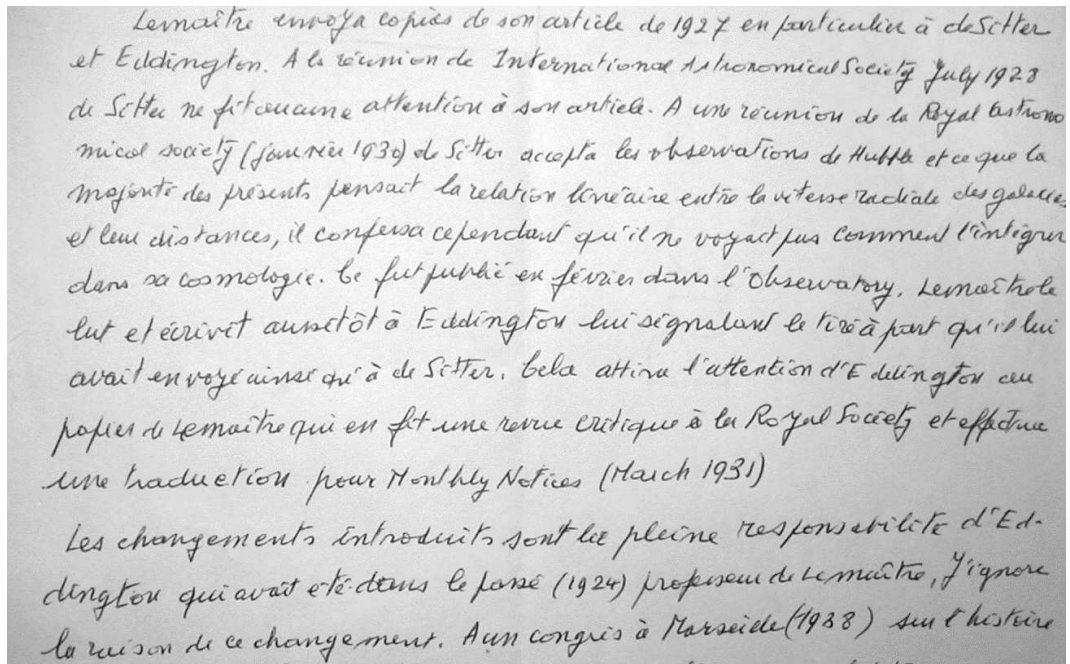 Lemaître envoya copies de son article de 1927 en particulier à de Sitter
et Eddington. A la réunion de International Astronomical Society July 1928
de Sitter ne fit aucune attention à son article. A une réunion de la Royal Astrono
mical society (janvier 1930) de Sitter accepta les observations de Hubble et ce que la
majorité des présents pensait la relation linéaire entre la vitesse radiale des galaxies
et leur distances, il confessa cependant qu'il ne voyait pas comment l'intégrer
dans sa cosmologie. Ce fut publié en février dans l'Observatory, Lemaître le
lut et écrivit aussitôt à Eddington lui signalant le tiré à part qu'il lui
avait envoyé ainsi qu'à de Sitter. Cela attira l'attention d'Eddington au
papier de Lemaître qui en fit une revue critique à la Royal Society et effectua
une traduction pour Monthly Notices (March 1931)
Les changements introduits sont la pleine responsabilité d'Ed-
dington qui avait été dans le passé (1924) professeur de Lemaître, J'ignore
la raison de ce changement. A un congrès à Marseille (1988) sur l'histoire